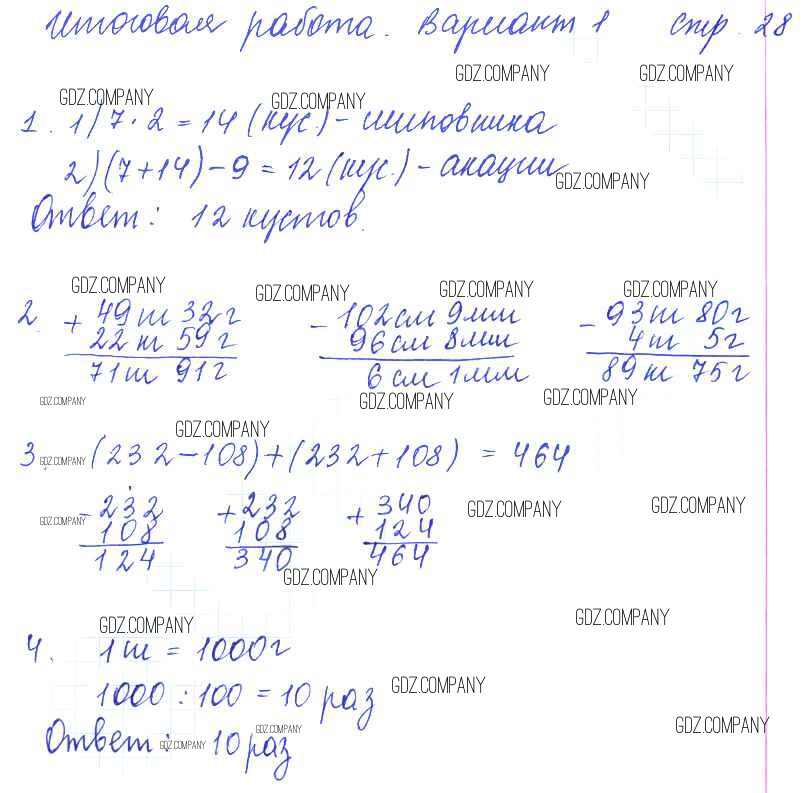 Итоговая работа. Вариант 1 стр. 28
GDZ.COMPANY GDZ.COMPANY
GDZ.COMPANY GDZ.COMPANY
1. 1) 7 · 2 = 14 (кус.) - шиповника
2) (7+14) - 9 = 12 (кус.) - акации
GDZ.COMPANY
Ответ: 12 кустов.
GDZ.COMPANY GDZ.COMPANY GDZ.COMPANY GDZ.COMPANY
2. + 49 т 32 г - 102 см 9 мм - 93 т 80 г
22 т 59 г 96 см 8 мм 4 т 5 г
71 т 91 г 6 см 1 мм 89 т 75 г
GDZ.COMPANY GDZ.COMPANY GDZ.COMPANY
GDZ.COMPANY
3. GDZ.COMPANY (232-108)+(232+108) = 464
- 232 + 232 + 340 GDZ.COMPANY GDZ.COMPANY
GDZ.COMPANY 108 108 124
124 340 464
GDZ.COMPANY
GDZ.COMPANY GDZ.COMPANY
4. 1 т = 1000 г
1000 : 100 = 10 раз GDZ.COMPANY
GDZ.COMPANY GDZ.COMPANY
Ответ: GDZ.COMPANY 10 раз